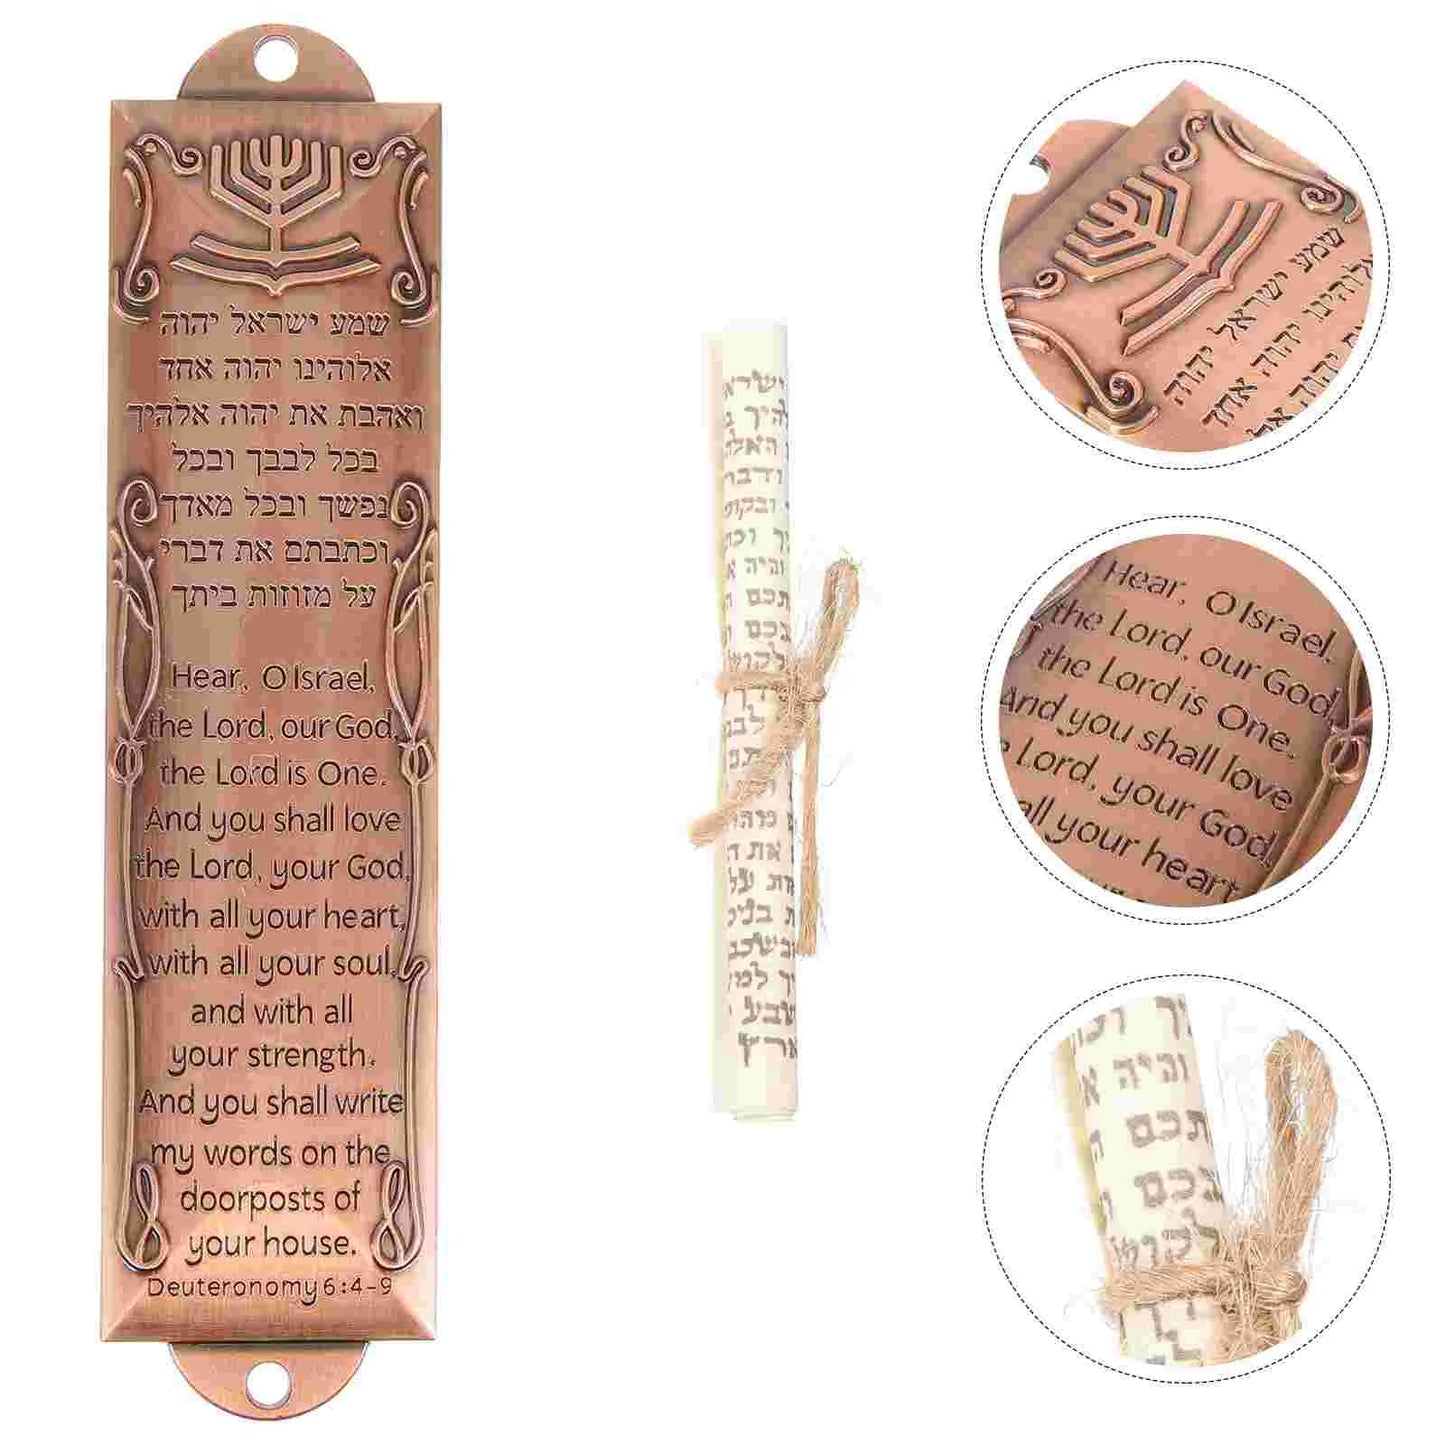 שמע ישראל יהוה
אלוהינו יהוה אחד
ואהבת את יהוה אלהיך
בכל לבבך ובכל
נפשך ובכל מאדך
וכתבתם את דברי
על מזוזות ביתך
Hear, O Israel,
the Lord, our God,
the Lord is One.
And you shall love
the Lord, your God,
with all your heart,
with all your soul,
and with all
your strength.
And you shall write
my words on the
doorposts of
your house.
Deuteronomy 6:4-9
ודבר
ובקומ
והיה א
תכם
בכם
את
על
שבע
ארץ
שמע ישראל יהוה
אלוהינו יהוה אחד
יהוה
Hear, O Israel,
the Lord, our God,
the Lord is One.
And you shall love
Lord, your God,
all your heart,
והיה א
תכם
בכם